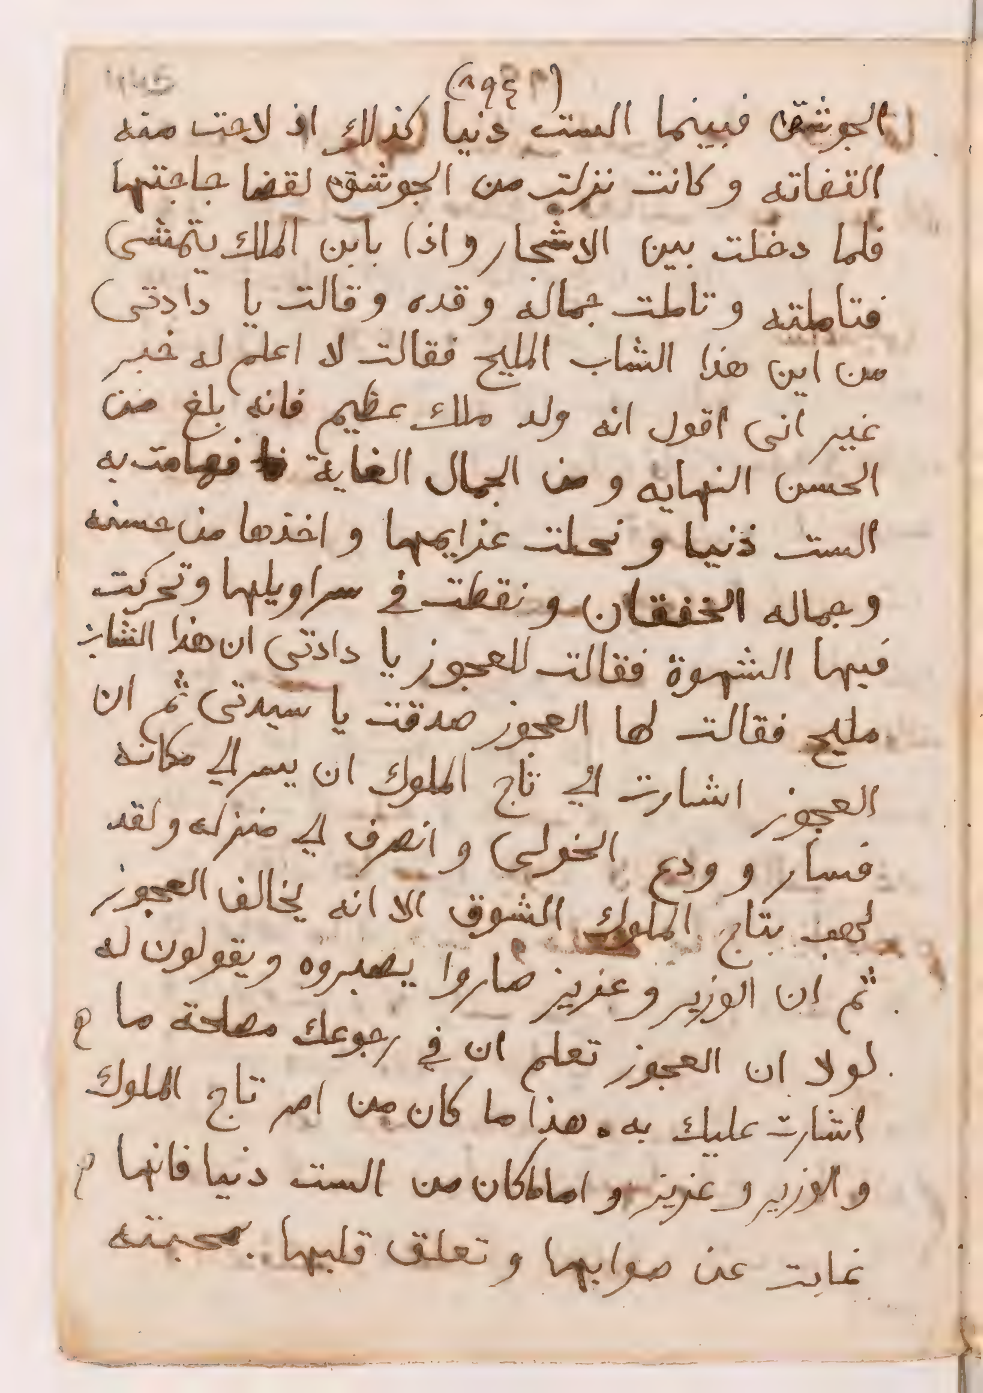 (٨٩٤٣)
الجوشق فبينما الست دنيا كذلك اذ لاحت منه
التفاته و كانت نزلت من الجوشق لقضا حاجتها
فلما دخلت بين الاشجار و اذا بابن الملك يتمشى
فتاملته و تاملت جماله و قده و قالت يا دادتى
من اين هذا الشاب المليح فقالت لا اعلم له خبر
غير انى اقول انه ولد ملك عظيم فانه بلغ من
الحسن النهايه و من الجمال الغاية فهامت به
الست دنيا و نحلت عزايمها و اخذها من حسنه
و جماله الخفقان و نقطت في سراويلها و تحركت
فيها الشهوة فقالت للعجوز يا دادتى ان هذا الشاب
مليح فقالت لها العجوز صدقت يا سيدتى ثم ان
العجوز اشارت الي تاج الملوك ان يسر الي مكانه
فسار و ودع الخولى و انصرف الي منزله و لقد
لجعب بتاج الملوك الشوق الا انه يخالف العجوز
ثم ان الوزير و عزيز صاروا يصبروه و يقولون له
لولا ان العجوز تعلم ان في رجوعك مصلحة ما
اشارت عليك به . هذا ما كان من امر تاج الملوك
و الوزير و عزيز و اما ما كان من الست دنيا فانها
غابت عن صوابها و تعلق قلبها بمحبته